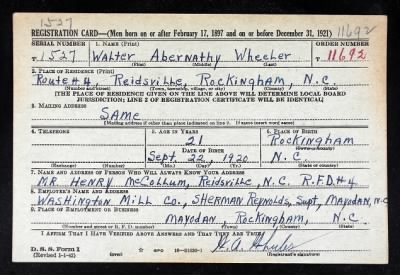 1527
11692
REGISTRATION CARD—(Men born on or after February 17, 1897 and on or before December 31, 1921)
SERIAL NUMBER 1. NAME (Print) ORDER NUMBER
T 1527 Walter Abernathy Wheeler T 11692
(First) (Middle) (Last)
2. PLACE OF RESIDENCE (Print)
Route #4, Reidsville, Rockingham, N.C.
(Number and street) (Town, township, village, or city) (County) (State)
[THE PLACE OF RESIDENCE GIVEN ON THE LINE ABOVE WILL DETERMINE LOCAL BOARD
JURISDICTION; LINE 2 OF REGISTRATION CERTIFICATE WILL BE IDENTICAL]
3. MAILING ADDRESS
SAME
[Mailing address if other than place indicated on line 2. If same insert word same]
4. TELEPHONE 5. AGE IN YEARS 6. PLACE OF BIRTH
21 Rockingham
DATE OF BIRTH (Town or county)
Sept. 22, 1920 N.C.
(Exchange) (Number) (Mo.) (Day) (Yr.) (State or country)
7. NAME AND ADDRESS OF PERSON WHO WILL ALWAYS KNOW YOUR ADDRESS
MR. HENRY McCOLLUM, Reidsville, N.C. R.F.D.#4
8. EMPLOYER'S NAME AND ADDRESS
WASHINGTON MILL CO., SHERMAN REYNOLDS, Supt, MAYODAN, N.C
9. PLACE OF EMPLOYMENT OR BUSINESS
MAYODAN, ROCKINGHAM, N.C.
(Number and street or R. F. D. number) (Town) (County) (State)
I AFFIRM THAT I HAVE VERIFIED ABOVE ANSWERS AND THAT THEY ARE TRUE.
D. S. S. Form 1
(Revised 1-1-42) GPO